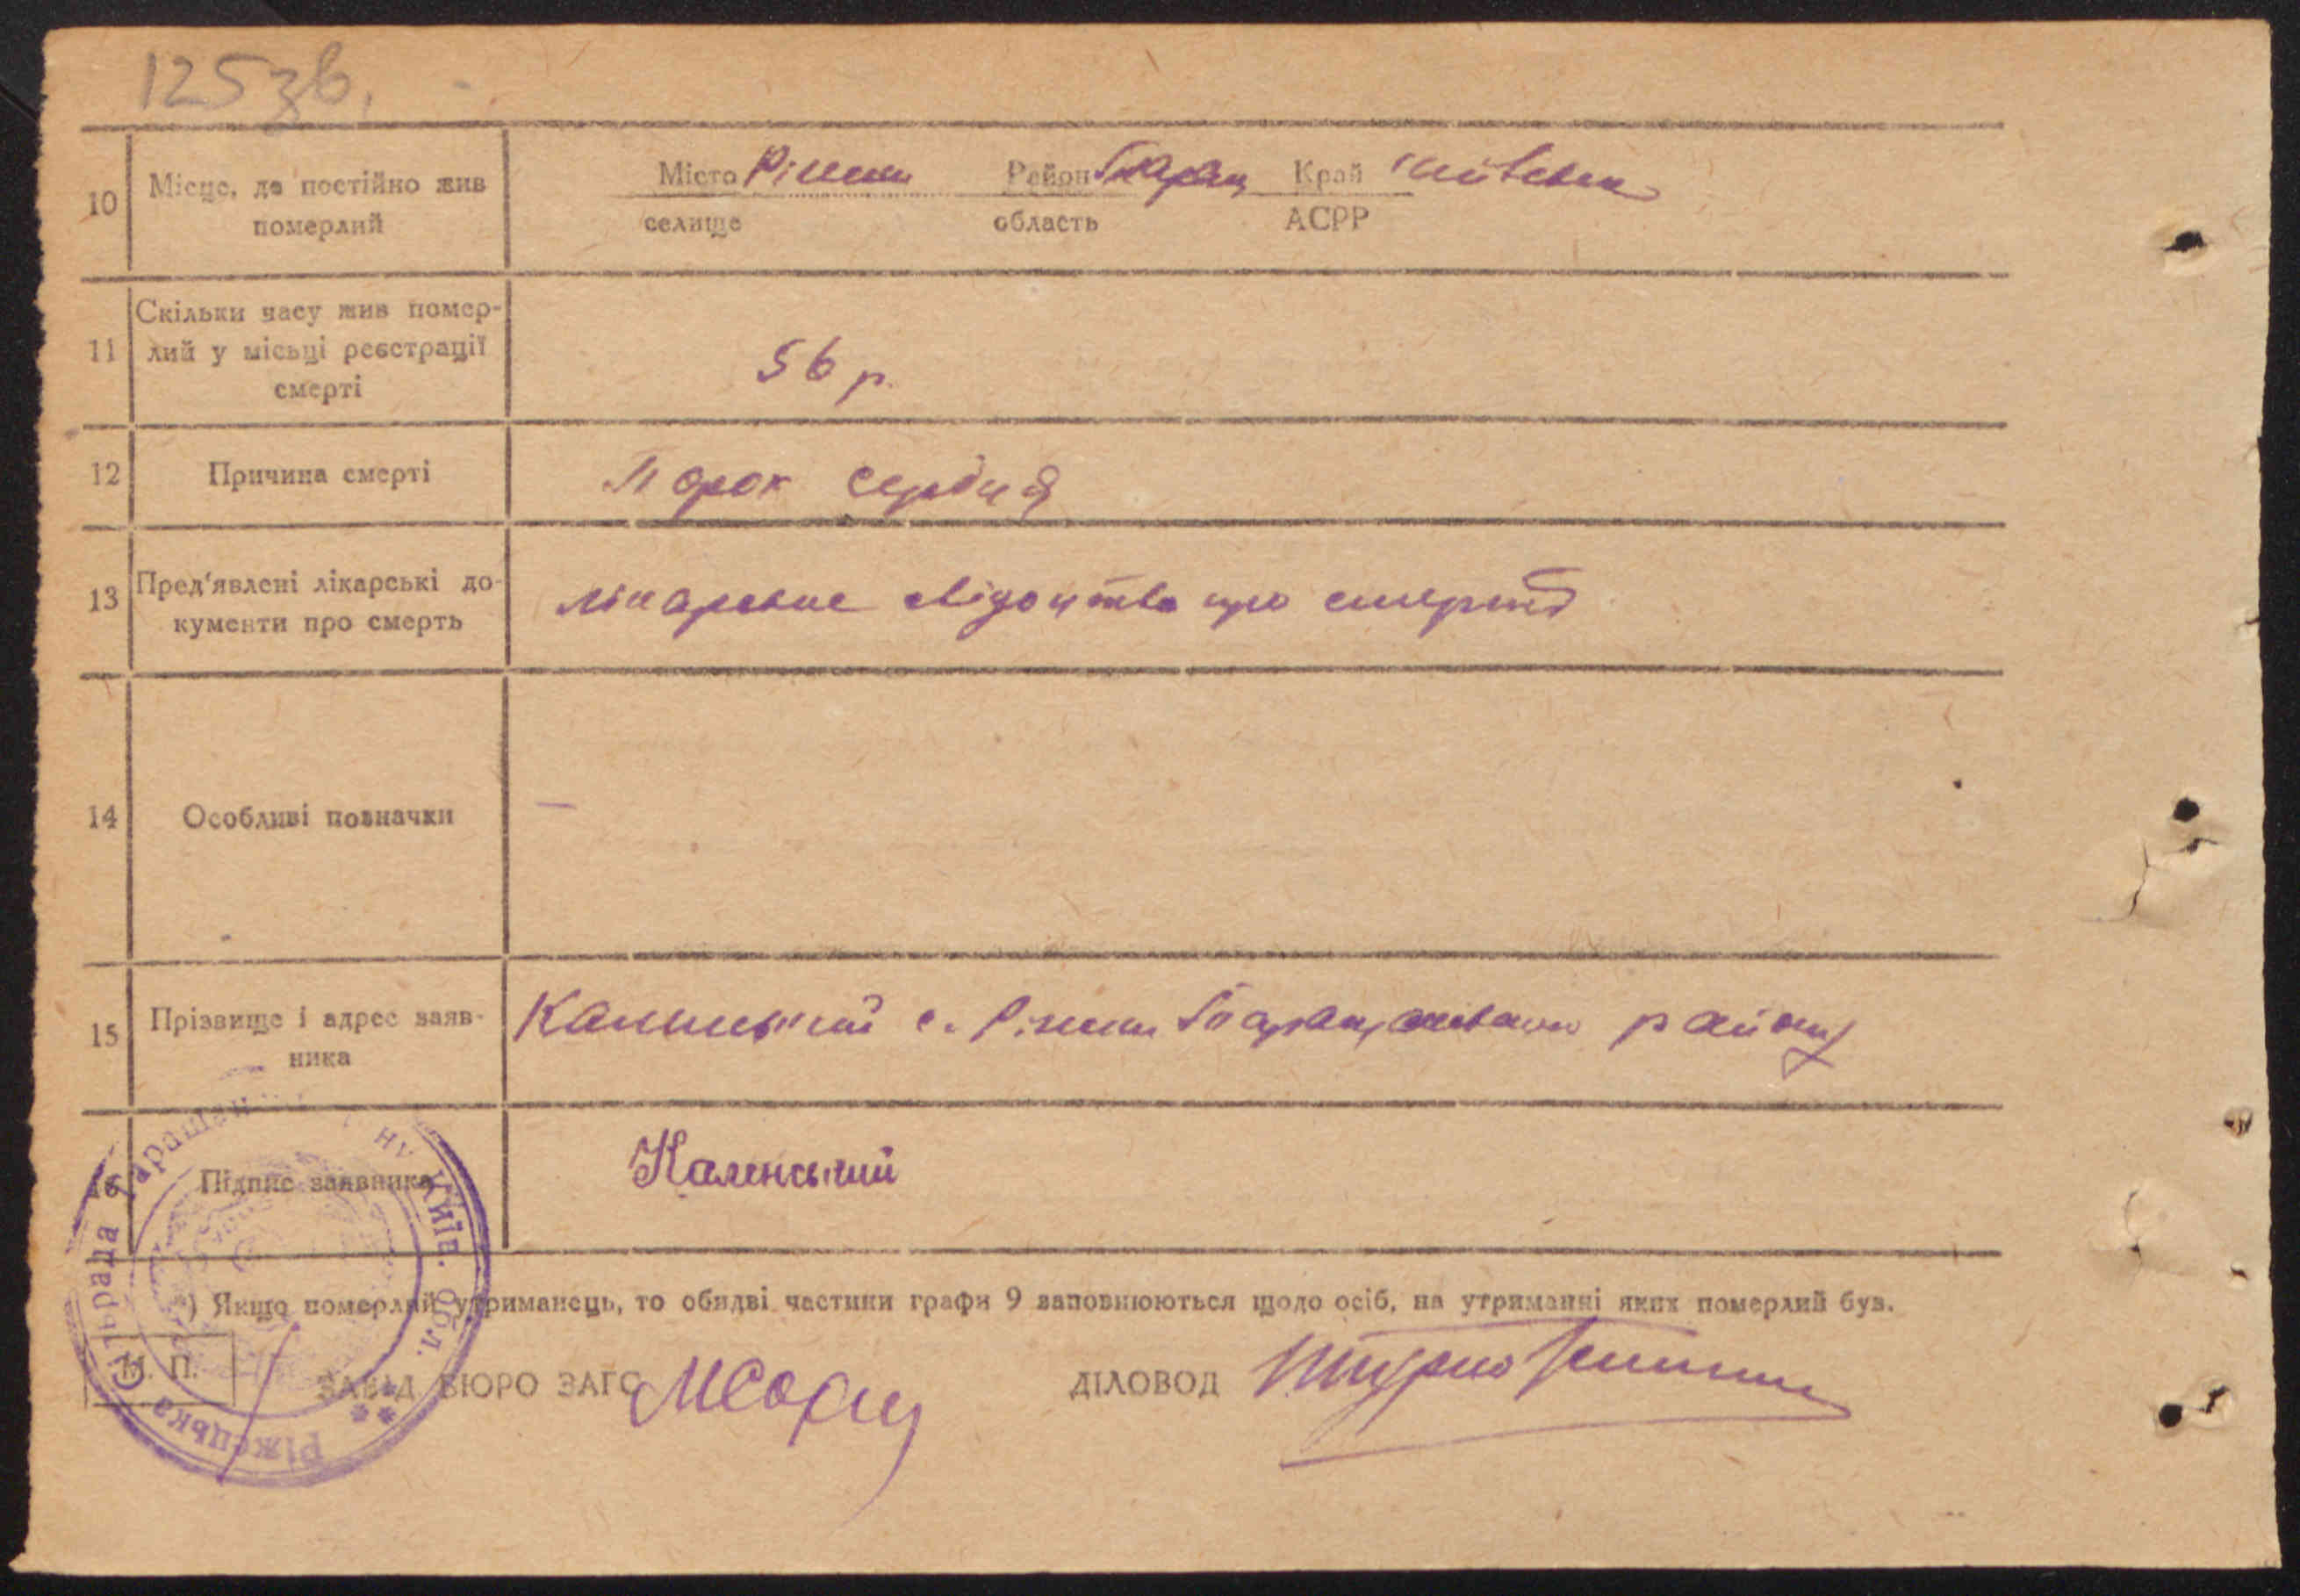 125 зв.
10 Місце, де постійно жив померлий
Місто Ріжки Район Таращ Край Київська
селище область АСРР
11 Скільки часу жив помер-
лий у місьці реєстрації
смерті
56 р.
12 Причина смерті Порок сердця
13 Пред'явлені лікарські до-
кументи про смерть
лікарське свідоцтво про смерть
14 Особливі позначки —
15 Прізвище і адрес заяв-
ника
Калинський с. Ріжки Таращанського району
16 Підпис заявника Каленський
*) Якщо померлий утриманець, то обидві частини графи 9 заповнюються щодо осіб, на утриманні яких померлий був.
М. П.
ЗАВІД БЮРО ЗАГС ДІЛОВОД
Ріжецька Сільрада Таращан ну Київ. обл.